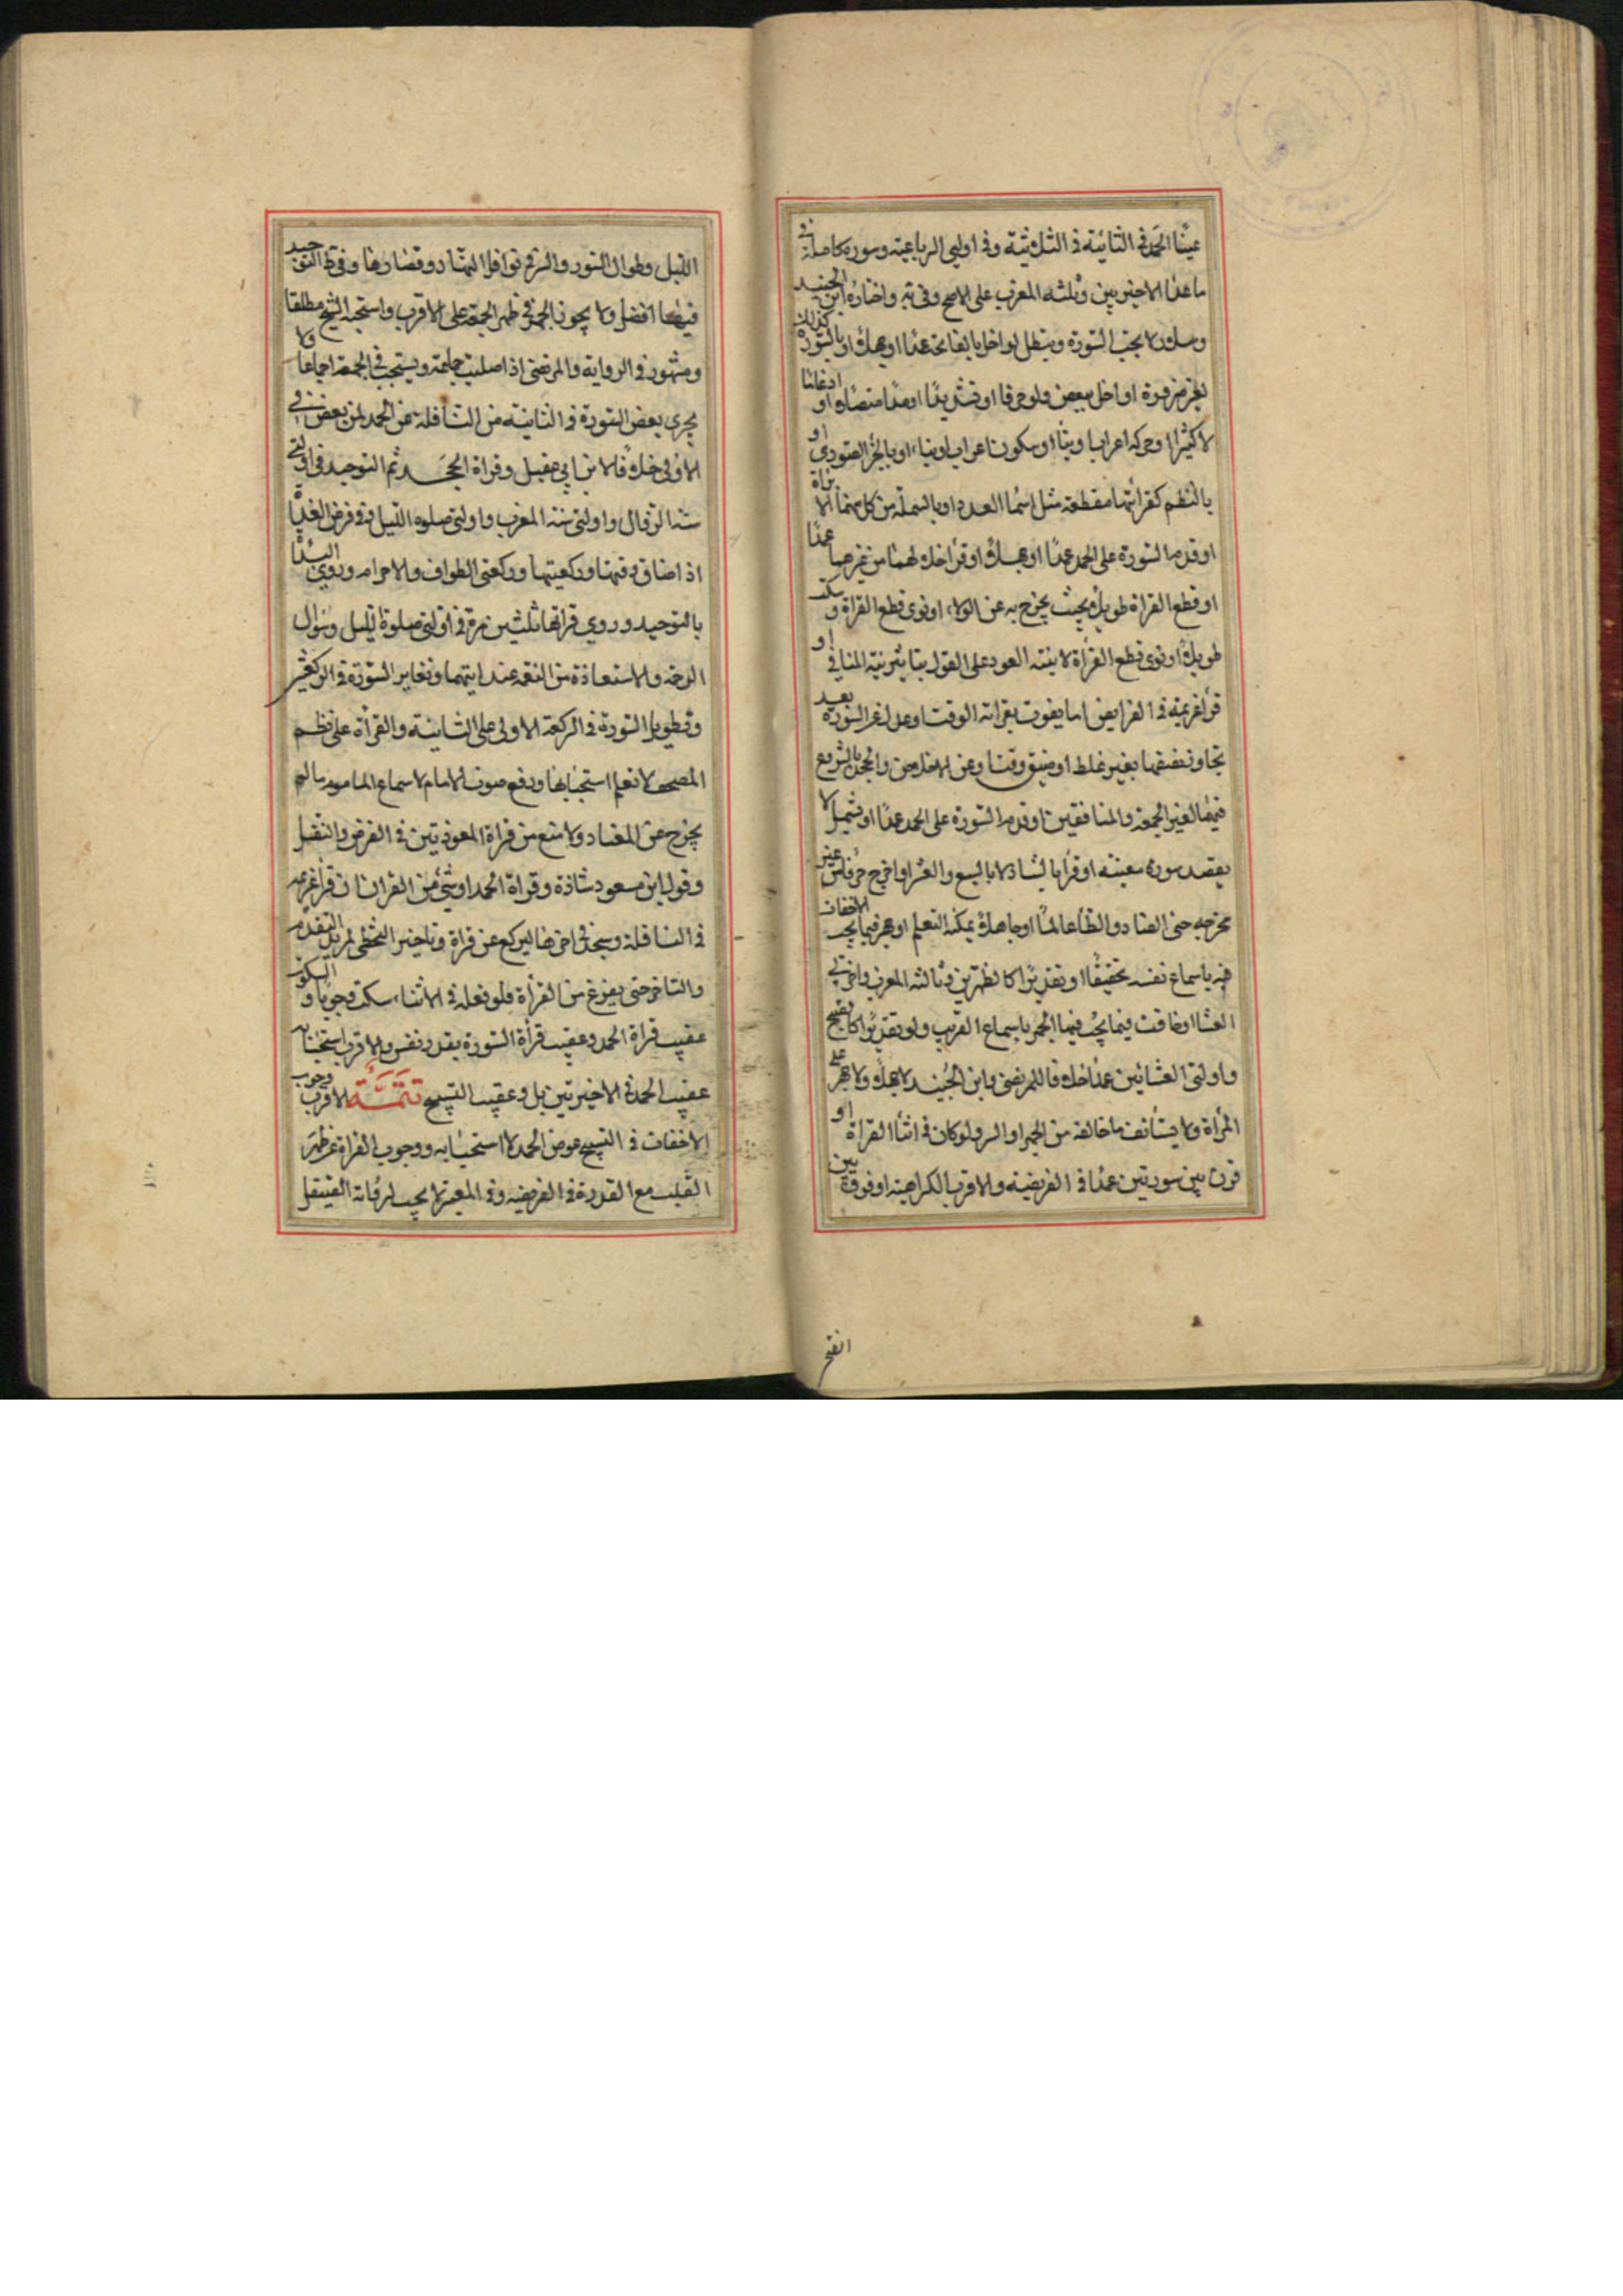 عينا الحمد في الثنائية وفي الثلاثية وفي اوليي الرباعية وسورة كاملة في
ما عدا الاخيرتين وثالثة المغرب على الاصح وفي واختاره ابن الجنيد
وسلار لا يجب السورة وتبطل لو اخل بالفاتحة عمدا او جهلا او بالسورة كذلك
لغير ضرورة او اخل ببعض ولو حرفا او تشديدا او مدا متصلا او ادغاما
لا كثيرا او حركة اعراب او بناء او سكون اعراب او بناء او بالجزء الصوري او
بالنظم كقرائتها مقطعة مثل اسماء العدد او بالبسملة من كل منهما الا براة
او قدم السورة على الحمد عمدا او جهلا او قرأ خلالهما من غيرهما عمدا
او قطع القراة طويلا بحيث يخرج به عن الولاء او نوى قطع القراة وسكت
طويلا او نوى قطع القراة لا بنية العود على القول بتاثير نية المنافي او
قرأ عزيمة في الفرايض او ما يفوت بقراته الوقت او عدل عن السورة بعد
تجاوز نصفها بغير غلط او ضيق وقت او عن الاخلاص والجحد بالشروع
فيهما لغير الجمعة والمنافقين او قدم السورة على الحمد عمدا او بسمل لا
بقصد سورة معينة او قرأ بالشاذ لا بالسبع والعشر او اخرج حرفا من غير
مخرجه حتى الضاد والظاء عالما او جاهلا يمكنه التعلم او جهر فيما يجب الاخفات
فيه باسماع نفسه تحقيقا او تقديرا كالظهرين وثالثة المغرب واخرتي
العشا او خافت فيما يجب فيه الجهر باسماع القريب ولو تقديرا كالصبح
واولتي العشائين عمدا خلافا للمرتضى وابن الجنيد لا جهلا ولا جهر على
المراة ولا يستأنف ما خالف من الجهر او السر ولو كان في اثناء القراة او
قرن بين سورتين عمدا في الفريضة والاقرب الكراهية او فرق بين
الفتح
الليل وطوال السور والسر في نوافل النهار وقصارها وفي التوحيد
فيها افضل ولا يجوز الجهر في ظهر الجمعة على الاقرب واستحبه الشيخ مطلقا
ومشهور في الرواية والمرتضى اذا صليت جماعة ويستحب في الجمعة اجماعا ولا
يجزي بعض السورة في الثانية من النافلة عن الحمد لمن بعض في
الاولى خلافا لابن ابي عقيل وقراة الجحد ثم التوحيد في اولتي
سنة الزوال واولتي سنة المغرب واولتي صلوة الليل وفي فرض الغداة
اذا ضاق وقتها وركعتيها وركعتي الطواف والاحرام وروي البداة
بالتوحيد وروي قراتها ثلثين مرة في اولتي صلوة الليل وسؤال
الرحمة والاستعاذة من النقمة عند ايتيهما وتغاير السورة في الركعتين
وتطويل السورة في الركعة الاولى على الثانية والقراة على نظم
المصحف لا نعلم استحبابها ورفع صوت الامام لاسماع الماموم ما لم
يخرج عن المعتاد ولا منع من قراة المعوذتين في الفرض والنفل
وقول ابن مسعود شاذة وقراة الحمد او شئ من القران ان قرأ عزيمة
في النافلة وسجد في اخرها ليركع عن قراة وتاخير المخطي لمريد التقدم
والتاخر حتى يفرغ من القراة فلو فعله في الاثناء سكت وجوبا والسكوت
عقيب قراة الحمد وعقيب قراة السورة بقدر نفس والاقرب استحبابه
عقيب الحمد في الاخيرتين بل وعقيب التسبيح تتمة الاقرب وجوب
الاخفات في التسبيح عوض الحمد لا استحبابه ووجوب القراة عن ظهر
القلب مع القدرة في الفريضة وفي